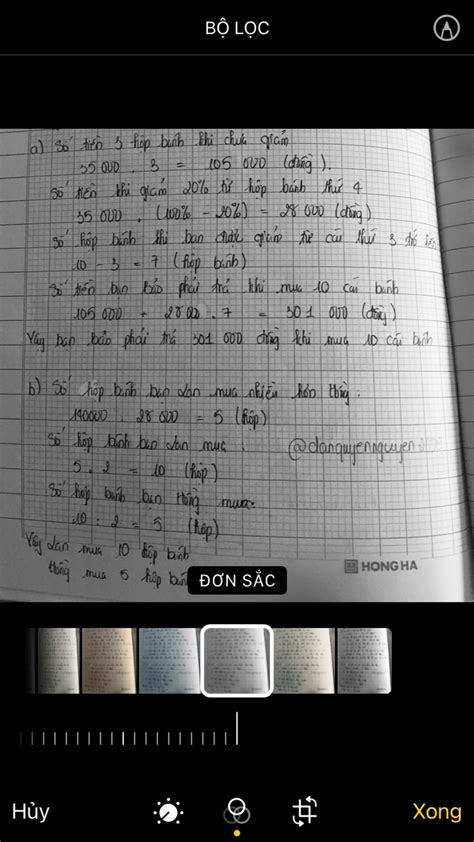 BỘ LỌC
a) Số tiền 3 hộp bánh khi chưa giảm
35 000 . 3 = 105 000 (đồng).
Số tiền khi giảm 20% từ hộp bánh thứ 4
35 000 . (100% - 20%) = 28 000 (đồng)
Số hộp bánh khi bạn được giảm từ cái thứ 3 trở lên
10 - 3 = 7 (hộp bánh)
Số tiền bạn Bảo phải trả khi mua 10 cái bánh
105 000 + 28 00 . 7 = 301 000 (đồng)
Vậy bạn bảo phải trả 301 000 đồng khi mua 10 cái bánh
b) Số hộp bánh bạn Lan mua nhiều hơn Hồng.
140000 : 28 000 = 5 (hộp)
Số hộp bánh bạn Lan mua.
5 . 2 = 10 (hộp)
Số hộp bánh bạn Hồng mua.
10 : 2 = 5 (hộp)
Vậy Lan mua 10 hộp bánh
Hồng mua 5 hộp bánh
HONG HA
ĐƠN SẮC
Hủy
Xong